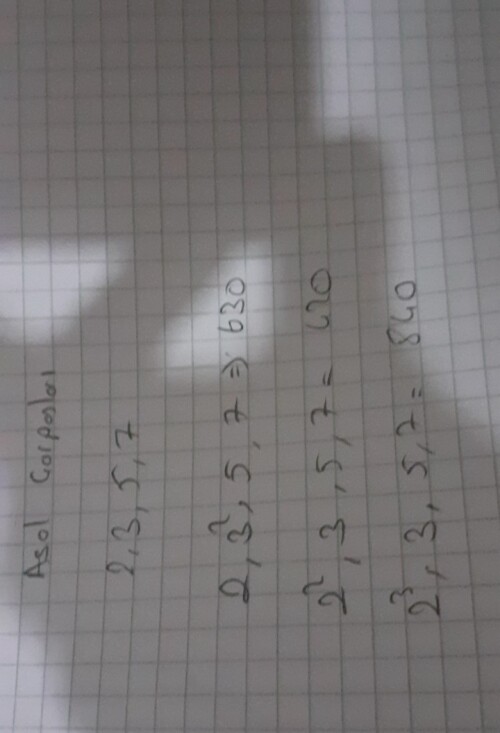 Asal Çarpanları
2, 3, 5, 7
2, 3², 5, 7 ⇒ 630
2², 3, 5, 7 = 420
2³, 3, 5, 7 = 840